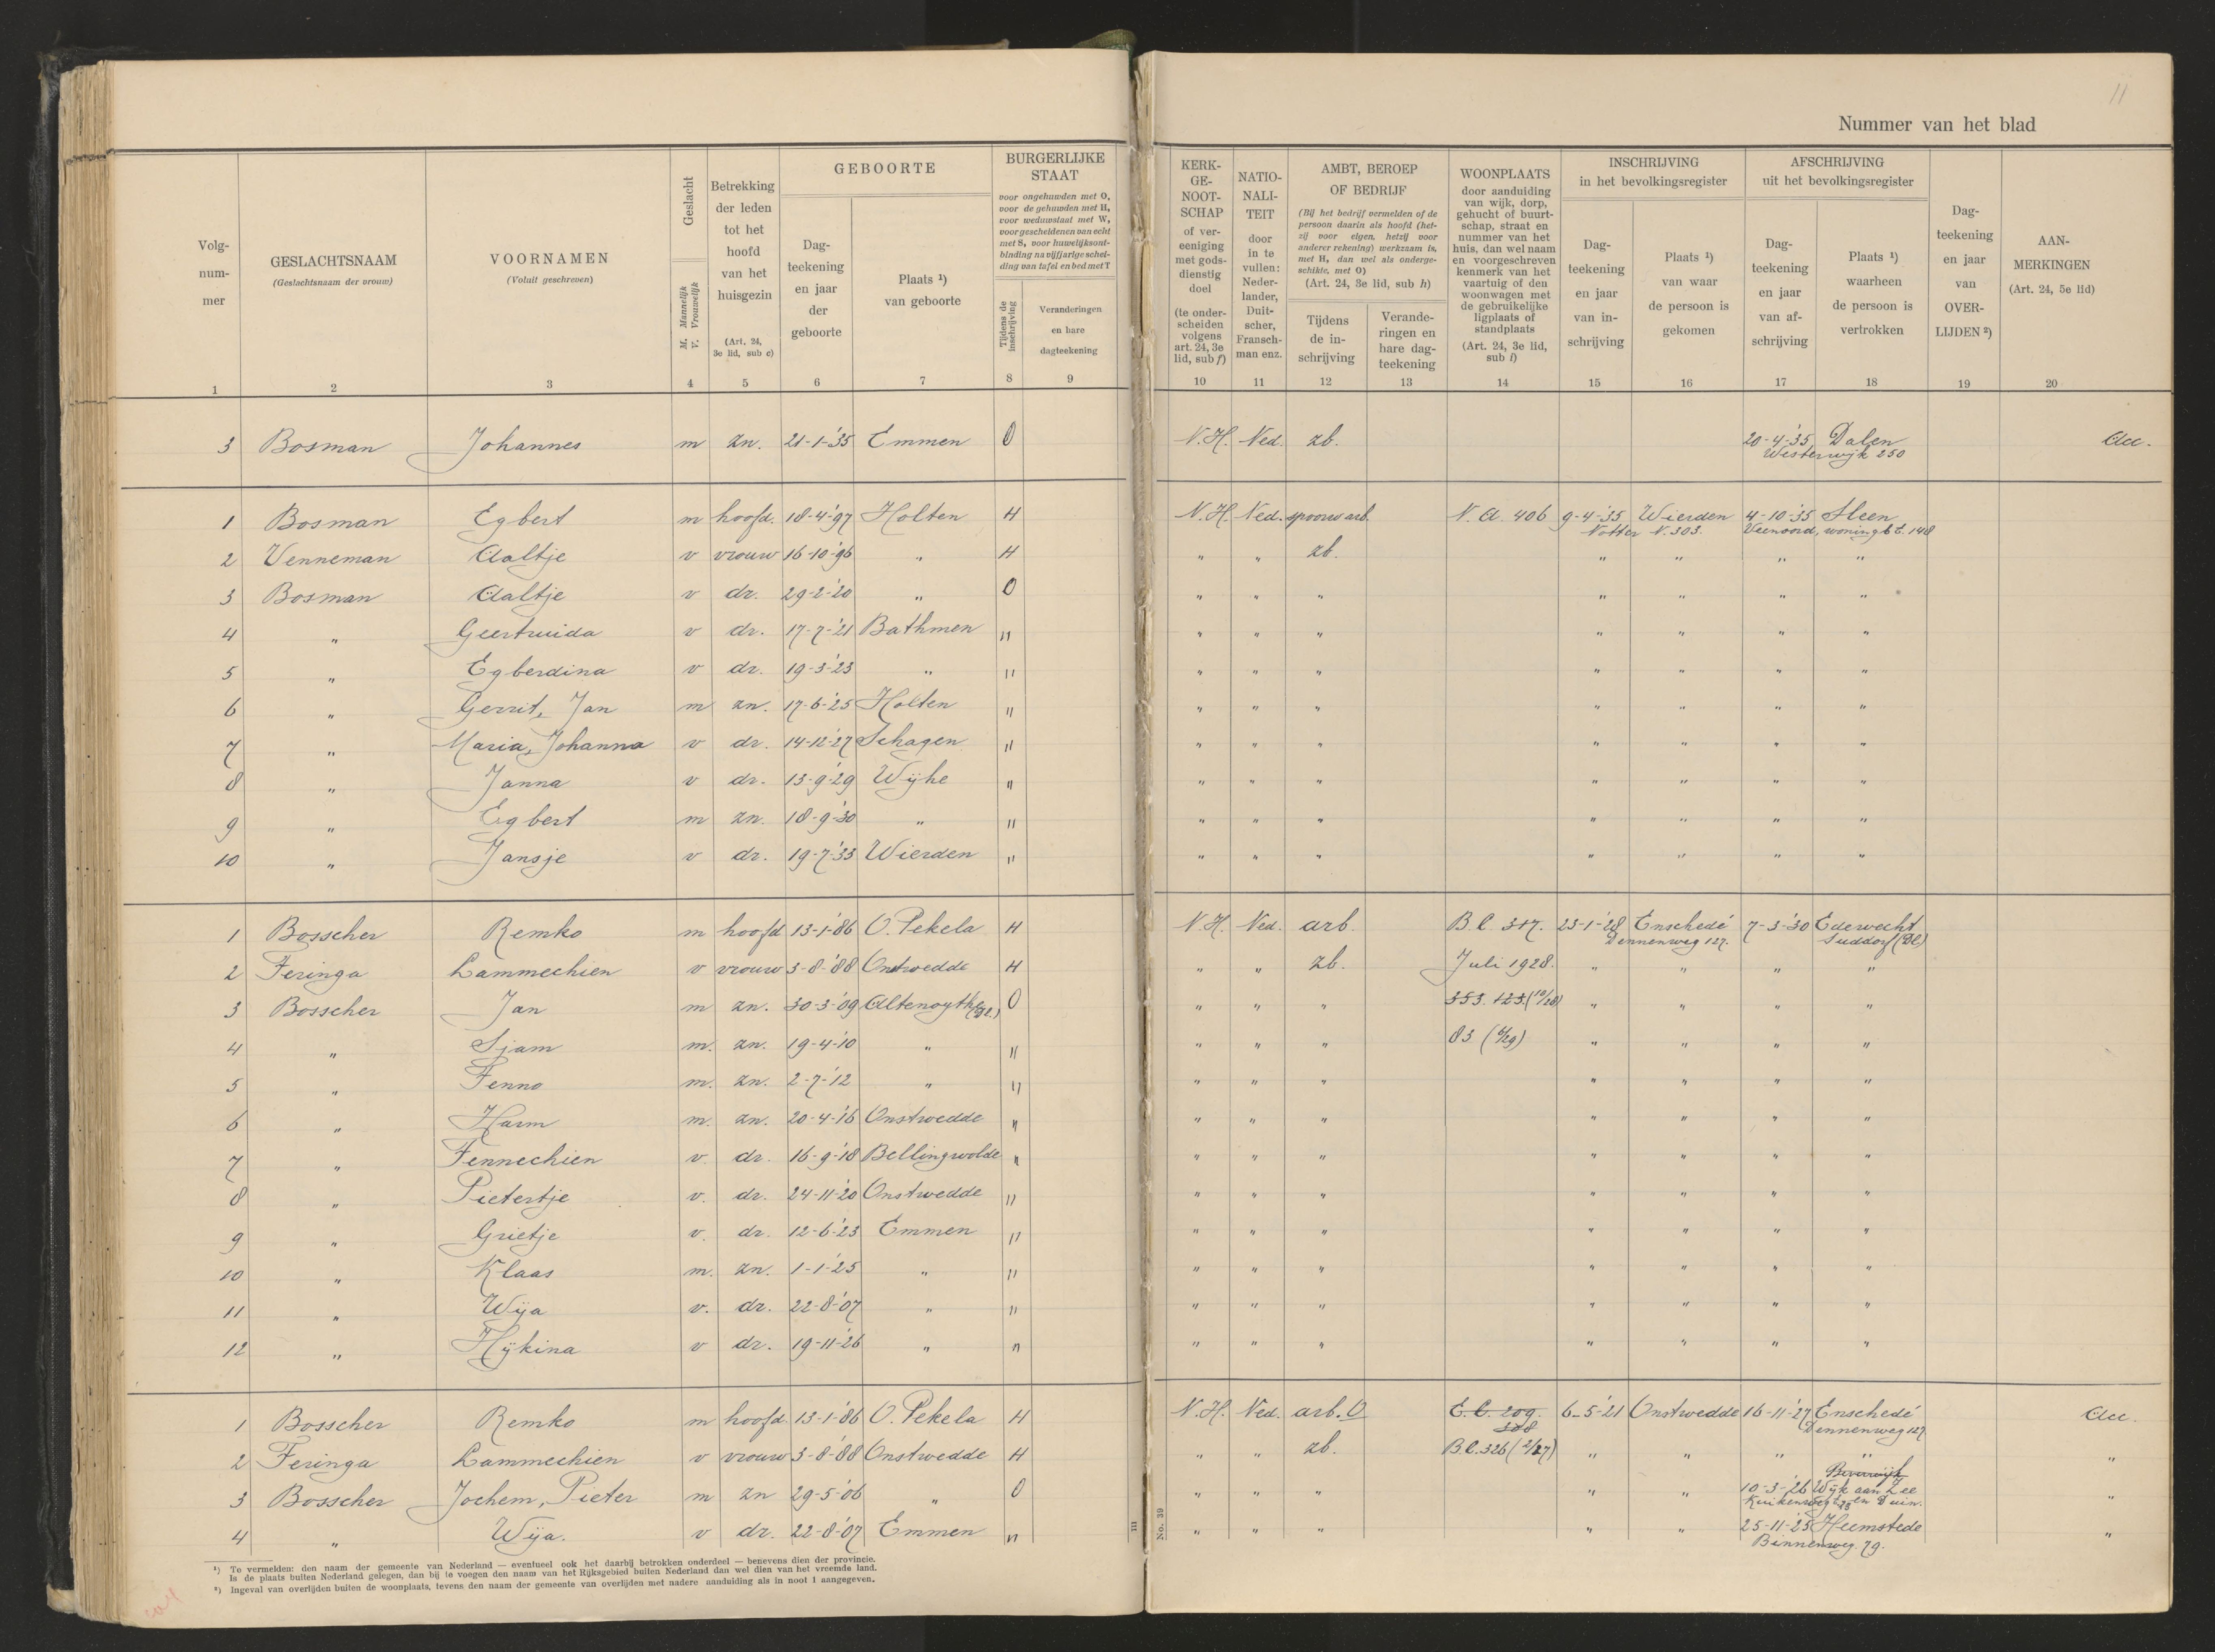 11
Nummer van het blad
Volg-
num-
mer
1
GESLACHTSNAAM
(Geslachtsnaam der vrouw)
2
VOORNAMEN
(Voluit geschreven)
3
Geslacht
M. Mannelijk
V. Vrouwelijk
4
Betrekking
der leden
tot het
hoofd
van het
huisgezin
(Art. 24,
3e lid, sub c)
5
GEBOORTE
Dag-
teekening
en jaar
der
geboorte
6
Plaats ¹)
van geboorte
7
BURGERLIJKE
STAAT
voor ongehuwden met O,
voor de gehuwden met H,
voor weduwstaat met W,
voor gescheidenen van echt
met S, voor huwelijksont-
binding na vijfjarige schei-
ding van tafel en bed met T
Tijdens de
inschrijving
8
Veranderingen
en hare
dagteekening
9
KERK-
GE-
NOOT-
SCHAP
of ver-
eeniging
met gods-
dienstig
doel
(te onder-
scheiden
volgens
art. 24, 3e
lid, sub f)
10
NATIO-
NALI-
TEIT
door
in te
vullen:
Neder-
lander,
Duit-
scher,
Fransch-
man enz.
11
AMBT, BEROEP
OF BEDRIJF
(Bij het bedrijf vermelden of de
persoon daarin als hoofd (het-
zij voor eigen, hetzij voor
anderer rekening) werkzaam is,
met H, dan wel als onderge-
schikte, met O)
(Art. 24, 3e lid, sub h)
Tijdens
de in-
schrijving
12
Verande-
ringen en
hare dag-
teekening
13
WOONPLAATS
door aanduiding
van wijk, dorp,
gehucht of buurt-
schap, straat en
nummer van het
huis, dan wel naam
en voorgeschreven
kenmerk van het
vaartuig of den
woonwagen met
de gebruikelijke
ligplaats of
standplaats
(Art. 24, 3e lid,
sub i)
14
INSCHRIJVING
in het bevolkingsregister
Dag-
teekening
en jaar
van in-
schrijving
15
Plaats ¹)
van waar
de persoon is
gekomen
16
AFSCHRIJVING
uit het bevolkingsregister
Dag-
teekening
en jaar
van af-
schrijving
17
Plaats ¹)
waarheen
de persoon is
vertrokken
18
Dag-
teekening
en jaar
van
OVER-
LIJDEN ²)
19
AAN-
MERKINGEN
(Art. 24, 5e lid)
20
3 Bosman Johannes m zn. 21-1-'35 Emmen O N.H. Ned. zb. 20-4-'35 Dalen
Westerwijk 250
1 Bosman Egbert m hoofd. 18-4-'97 Holten H N.H. Ned. spoorw arb. N. A. 406 9-4-'35 Wierden 4-10-'35 Sleen
Notter N. 303. Veenoord, woning b t. 148
2 Venneman Aaltje v vrouw 16-10-'96 " H " " zb. " " " "
3 Bosman Aaltje v dr. 29-2-'20 " O " " " " " " "
4 " Geertruida v dr. 17-7-'21 Bathmen " " " " " " " "
5 " Egberdina v dr. 19-3-'23 " " " " " " " " "
6 " Gerrit, Jan m zn. 17-6-'25 Holten " " " " " " " "
7 " Maria, Johanna v dr. 14-12-'27 Schagen " " " " " " " "
8 " Janna v dr. 13-9-'29 Wijhe " " " " " " " "
9 " Egbert m zn. 18-9-'30 " " " " " " " " "
10 " Jansje v dr. 19-7-'33 Wierden " " " " " " " "
1 Bosscher Remko m hoofd 13-1-'86 O. Pekela H N.H. Ned. arb. B C. 317. 23-1-'28 Enschedé 7-3-'30 Edewecht
Dennenweg 127. Suddorf (Dl)
2 Feringa Lammechien v vrouw 3-8-'88 Onstwedde H " " zb. Juli 1928. " " " "
3 Bosscher Jan m zn. 30-3-'09 Altenoythe (Dl.) O " " " 353. 123. (10/28) " " " "
4 " Sjam m. zn. 19-4-'10 " " " " " 83 (6/29) " " " "
5 " Fenno m. zn. 2-7-'12 " " " " " " " " "
6 " Harm m. zn. 20-4-'16 Onstwedde " " " " " " " "
7 " Fennechien v. dr. 16-9-'18 Bellingwolde " " " " " " " "
8 " Pietertje v. dr. 24-11-'20 Onstwedde " " " " " " " "
9 " Grietje v. dr. 12-6-'23 Emmen " " " " " " " "
10 " Klaas m. zn. 1-1-'25 " " " " " " " " "
11 " Wija v. dr. 22-8-'07 " " " " " " " " "
12 " Hijkina v dr. 19-11-'26 " " " " " " " " "
1 Bosscher Remko m hoofd. 13-1-'86 O. Pekela H N.H. Ned. arb. O E. C. 209. 6-5-'21 Onstwedde 16-11-'27 Enschedé
308 Dennenweg 127
2 Feringa Lammechien v vrouw 3-8-'88 Onstwedde H " " zb. B.C. 326 (2/27) " " " " "
Beverwijk
3 Bosscher Jochem, Pieter m zn 29-5-'06 " O " " " " " 10-3-'26 Wijk aan Zee "
en Duin.
4 " Wija. v dr. 22-8-'07 Emmen " " " " " " 25-11-'25 Heemstede "
Binnenweg. 79.
¹) Te vermelden: den naam der gemeente van Nederland — eventueel ook het daarbij betrokken onderdeel — benevens dien der provincie.
Is de plaats buiten Nederland gelegen, dan bij te voegen den naam van het Rijksgebied buiten Nederland dan wel dien van het vreemde land.
²) Ingeval van overlijden buiten de woonplaats, tevens den naam der gemeente van overlijden met nadere aanduiding als in noot 1 aangegeven.
III
No. 39